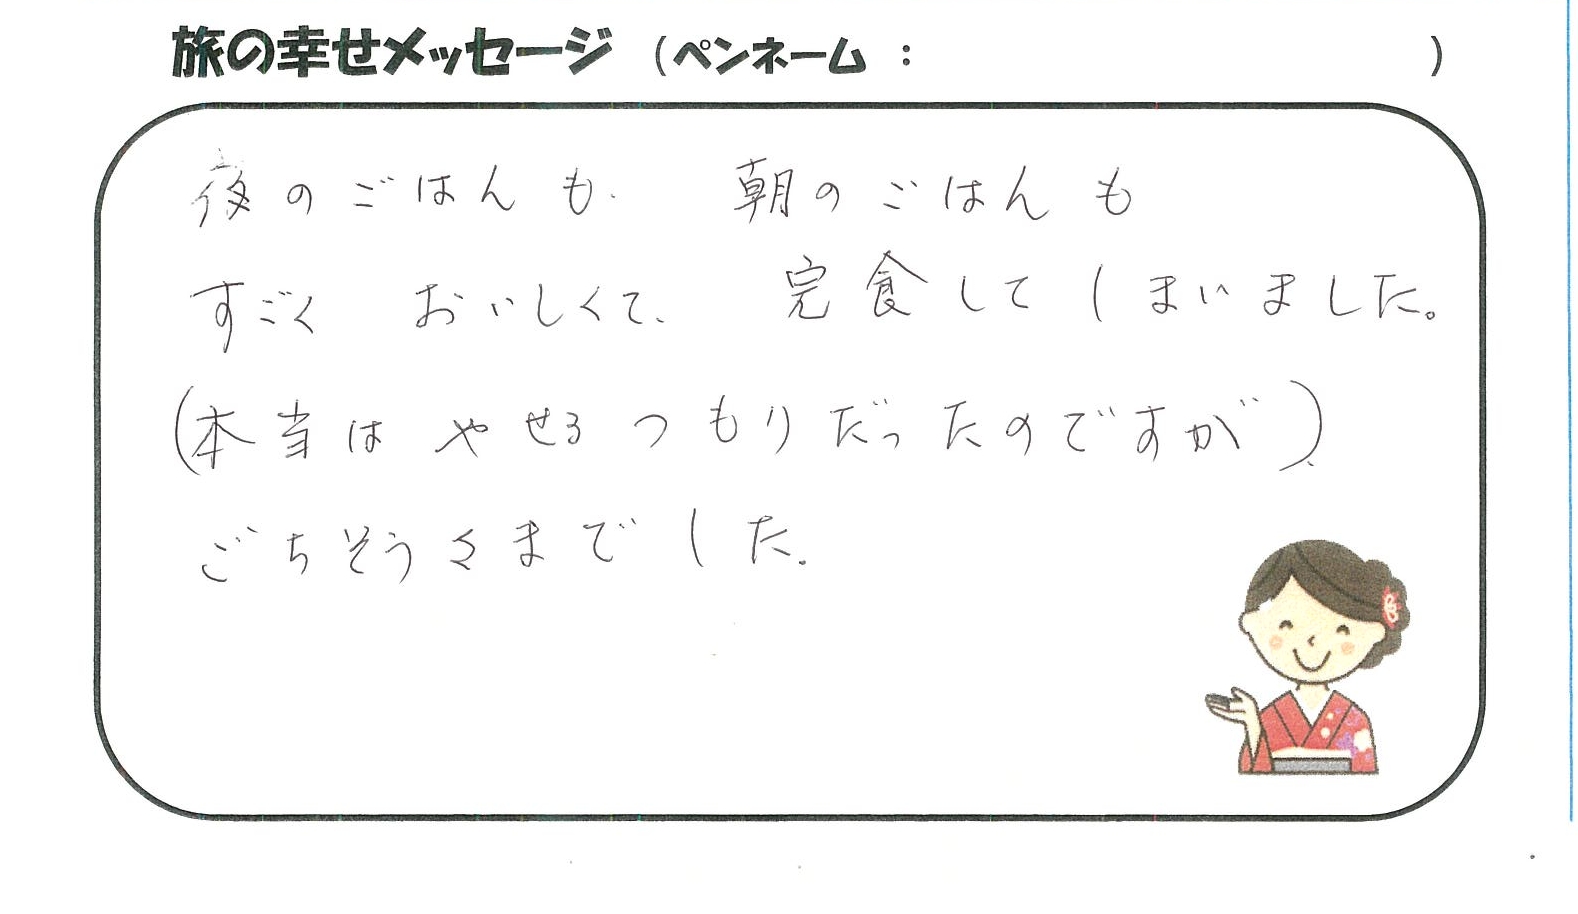 旅の幸せメッセージ （ペンネーム：　　　　　　　）
夜のごはんも、朝のごはんも
すごく おいしくて、完食してしまいました。
(本当は やせるつもりだったのですが)
ごちそうさまでした。